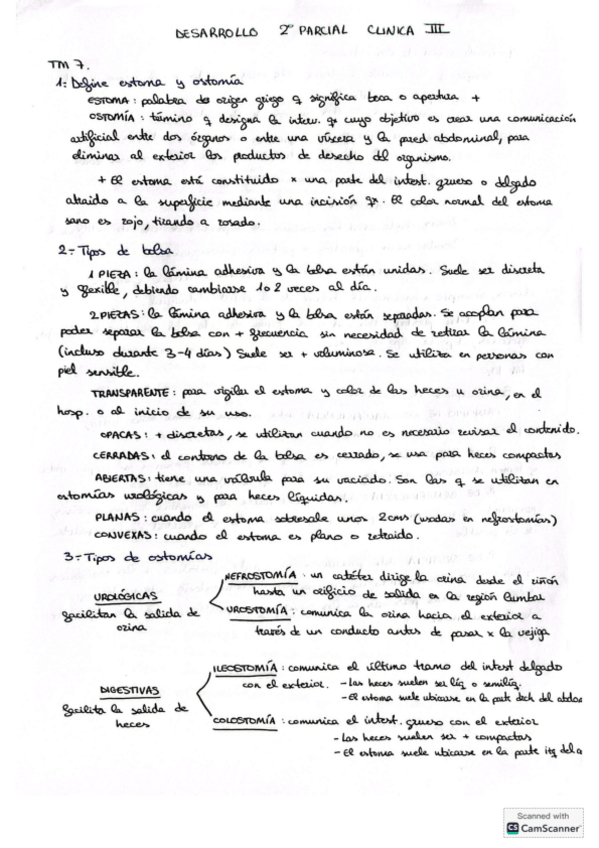 DESARROLLO 2º PARCIAL CLINICA III
TM 7.
1.- Define estoma y ostomía
ESTOMA: palabra de origen griego q significa boca o apertura +
OSTOMÍA: término q designa la interv. qx cuyo objetivo es crear una comunicación
artificial entre dos órganos o entre una víscera y la pared abdominal, para
eliminar al exterior los productos de desecho del organismo.
+ El estoma está constituido x una parte del intest. grueso o delgado
atraido a la superficie mediante una incisión qx. El color normal del estoma
sano es rojo, tirando a rosado.
2.- Tipos de bolsa
1 PIEZA: la lámina adhesiva y la bolsa están unidas. Suele ser discreta
y flexible, debiendo cambiarse 1 o 2 veces al día.
2 PIEZAS: la lámina adhesiva y la bolsa están separadas. Se acoplan para
poder separar la bolsa con + frecuencia sin necesidad de retirar la lámina
(incluso durante 3-4 días) Suele ser + voluminosa. Se utiliza en personas con
piel sensible.
TRANSPARENTE: para vigilar el estoma y color de las heces u orina, en el
hosp. o al inicio de su uso.
OPACAS: + discretas, se utilizan cuando no es necesario revisar el contenido.
CERRADAS: el contorno de la bolsa es cerrado, se usa para heces compactas
ABIERTAS: tiene una válvula para su vaciado. Son las q se utilizan en
ostomías urológicas y para heces líquidas.
PLANAS: cuando el estoma sobresale unos 2cms (usadas en nefrostomías)
CONVEXAS: cuando el estoma es plano o retraido.
3.- Tipos de ostomías
UROLÓGICAS
facilitan la salida de
orina
NEFROSTOMÍA: un catéter dirige la orina desde el riñón
hasta un orificio de salida en la región lumbar
UROSTOMÍA: comunica la orina hacia el exterior a
través de un conducto antes de pasar x la vejiga
DIGESTIVAS
facilita la salida de
heces
ILEOSTOMÍA: comunica el último tramo del intest delgado
con el exterior. - Las heces suelen ser líq o semilíq.
- El estoma suele ubicarse en la parte dech del abdo
COLOSTOMÍA: comunica el intest. grueso con el exterior
- Las heces suelen ser + compactas
- El estoma suele ubicarse en la parte izq del a
Scanned with
CS CamScanner